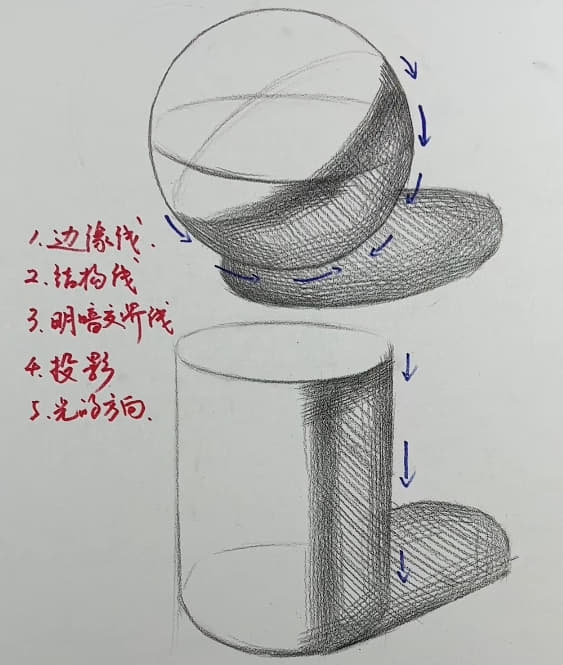 1.边缘线.
2.结构线
3.明暗交界线
4.投影
5.光的方向.